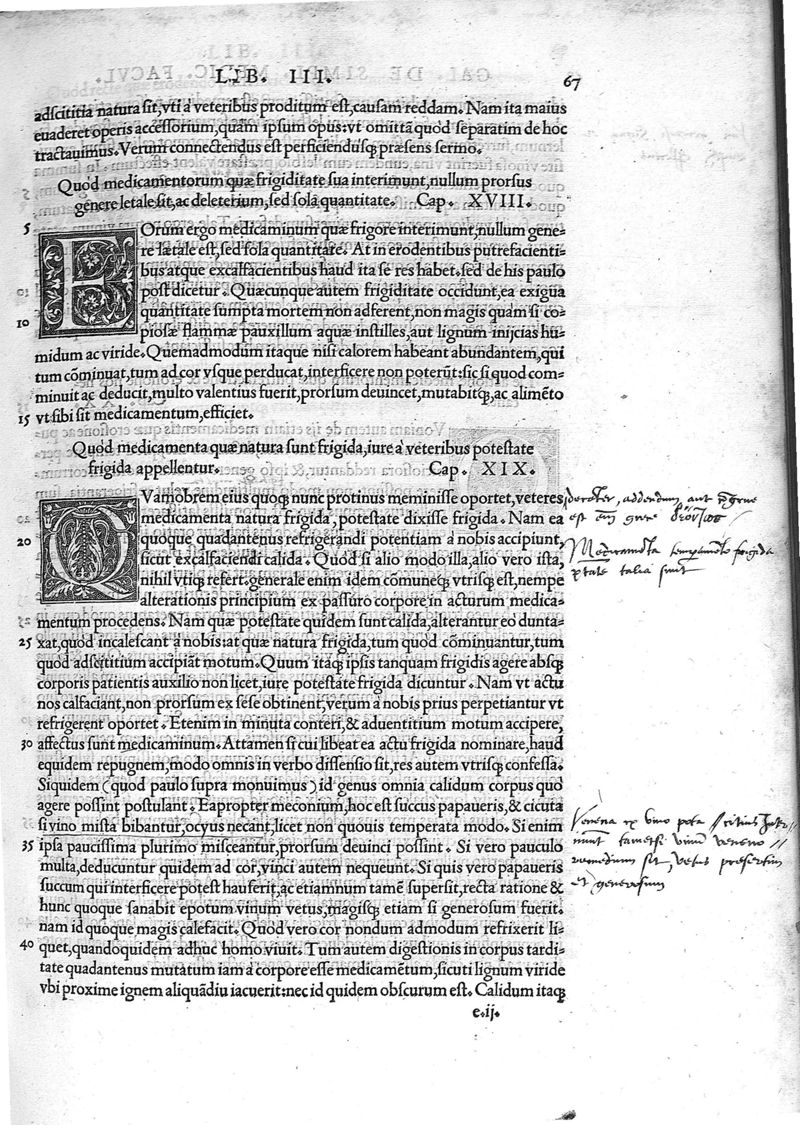 LIB. III. 67
adscititia natura sit, vti à veteribus proditum est, causam reddam. Nam ita maius
euaderet operis accessorium, quàm ipsum opus: vt omittã quòd separatim de hoc
tractauimus. Verum connectendus est perficiendusq; præsens sermo.
Quòd medicamentorum quæ frigiditate sua interimunt, nullum prorsus
genere letale sit, ac deleterium, sed sola quantitate. Cap. XVIII.
5 EOrum ergo medicaminum quæ frigore interimunt, nullum gene-
re lætale est, sed sola quantitate. At in erodentibus putrefacienti-
bus atque excalfacientibus haud ita se res habet. sed de his paulo
pòst dicetur. Quæcunque autem frigiditate occidunt, ea exigua
quantitate sumpta mortem non adferent, non magis quàm si co-
10 piosæ flammæ pauxillum aquæ instilles, aut lignum inijcias hu-
midum ac viride. Quemadmodum itaque nisi calorem habeant abundantem, qui
tum cõminuat, tum ad cor vsque perducat, interficere non poterũt: sic si quod com-
minuit ac deducit, multo valentius fuerit, prorsum deuincet, mutabitq;, ac alimẽto
15 vt sibi sit medicamentum, efficiet.
Quòd medicamenta quæ natura sunt frigida, iure à veteribus potestate
frigida appellentur. Cap. XIX.
QVamobrem eius quoq; nunc protinus meminisse oportet, veteres
medicamenta natura frigida, potestate dixisse frigida. Nam ea
20 quoque quadantenus refrigerandi potentiam à nobis accipiunt,
sicut excalfaciendi calida. Quòd si alio modo illa, alio vero ista,
nihil vtiq; refert. generale enim idem cõmuneq; vtrisq; est, nempe
alterationis principium ex passuro corpore in acturum medica-
mentum procedens. Nam quæ potestate quidem sunt calida, alterantur eo dunta-
25 xat, quòd incalescant à nobis: at quæ natura frigida, tum quòd cõminuantur, tum
quòd adscititium accipiãt motum. Quum itaq; ipsis tanquam frigidis agere absq;
corporis patientis auxilio non licet, iure potestate frigida dicuntur. Nam vt actu
nos calfaciant, non prorsum ex sese obtinent, verùm à nobis prius perpetiantur vt
refrigerent oportet. Etenim in minuta conteri, & aduentitium motum accipere,
30 affectus sunt medicaminum. Attamen si cui libeat ea actu frigida nominare, haud
equidem repugnem, modo omnis in verbo dissensio sit, res autem vtrisq; confessa.
Siquidem (quod paulo supra monuimus) id genus omnia calidum corpus quò
agere possint postulant. Eapropter meconium, hoc est succus papaueris, & cicuta
si vino mista bibantur, ocyus necant, licet non quouis temperata modo. Si enim
35 ipsa paucissima plurimo misceantur, prorsum deuinci possint. Si vero pauculo
multa, deducuntur quidem ad cor, vinci autem nequeunt. Si quis vero papaueris
succum qui interficere potest hauserit, ac etiamnum tamẽ supersit, recta ratione &
hunc quoque sanabit epotum vinum vetus, magisq; etiam si generosum fuerit.
nam id quoque magis calefacit. Quòd vero cor nondum admodum refrixerit li-
40 quet, quandoquidem adhuc homo viuit. Tum autem digestionis in corpus tardi-
tate quadantenus mutatum iam à corpore esse medicamẽtum, sicuti lignum viride
vbi proxime ignem aliquãdiu iacuerit: nec id quidem obscurum est. Calidum itaq;
e.ij.
addendum aut
est
Medicamẽta frigida
talia sunt
Venena ex vino pota
tametsi vinũ veneno
remedium sit, vetus presertim
et generosum